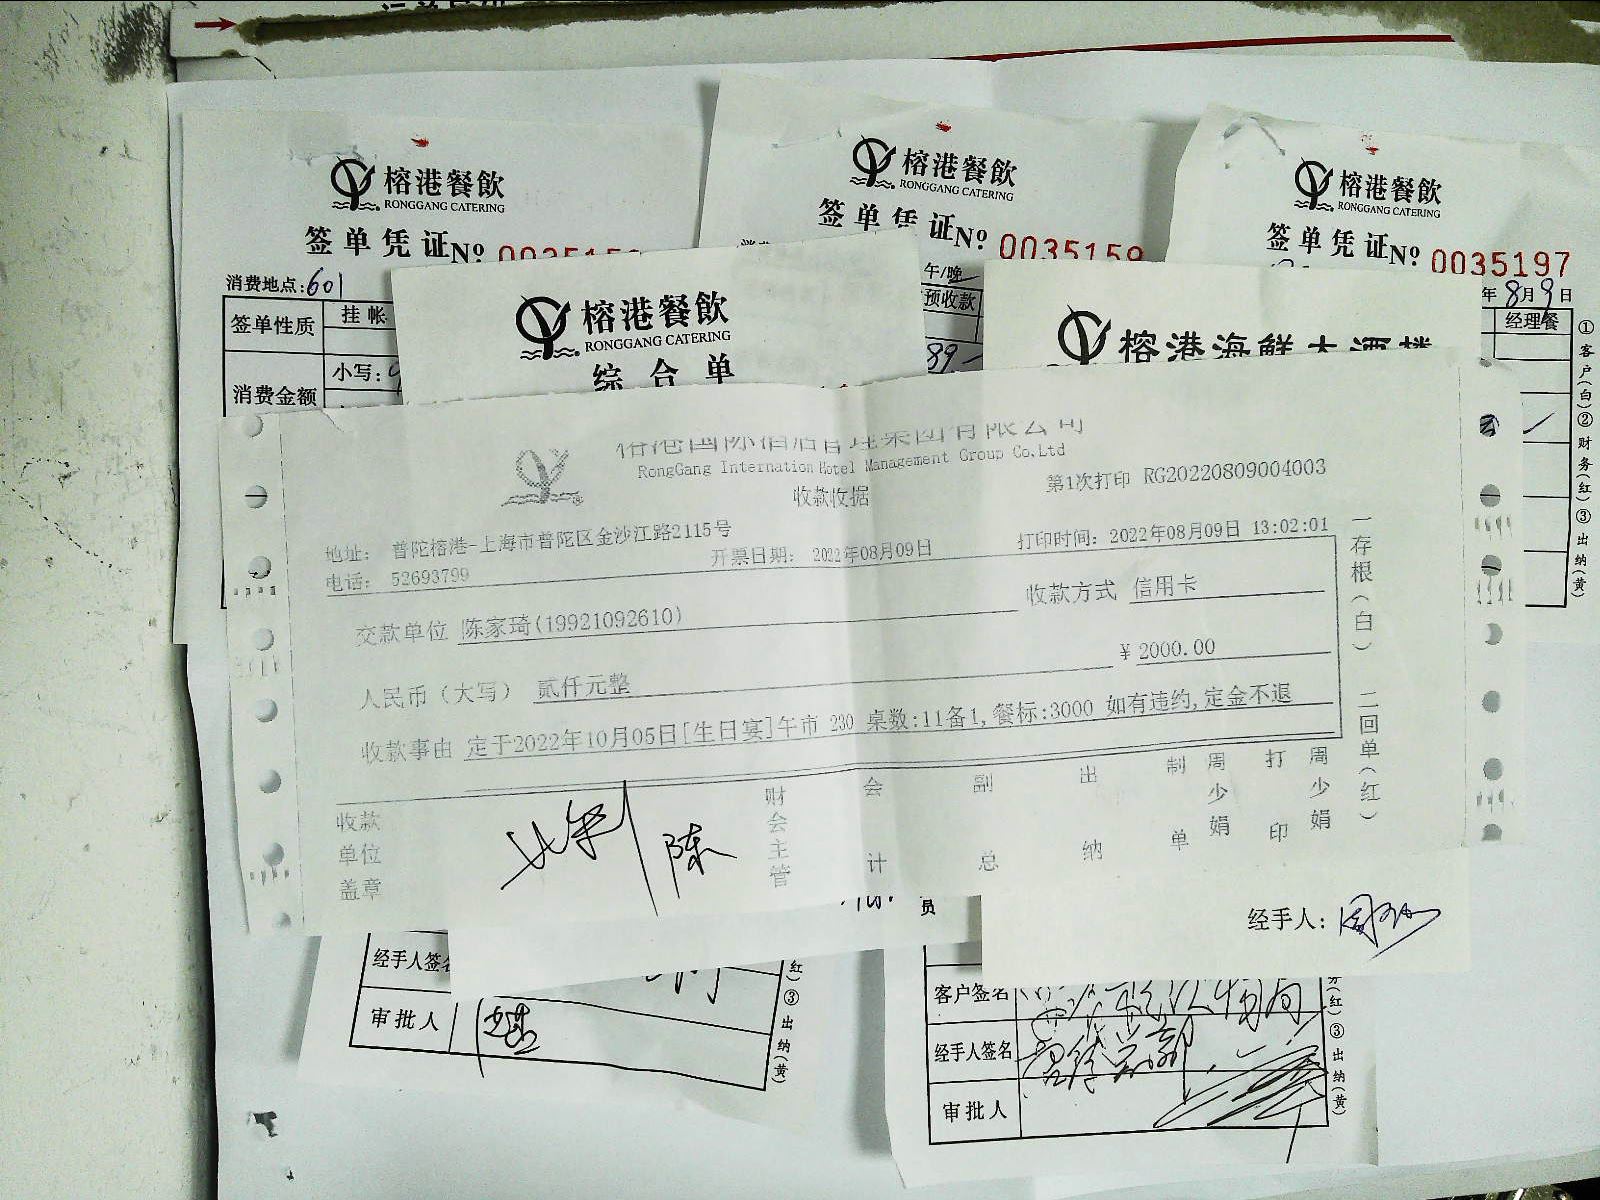 榕港餐飲
RONGGANG CATERING
签单凭证No
消费地点:601
签单性质
挂帐
消费金额
小写:
榕港餐飲
RONGGANG CATERING
签单凭证No 0035159
午/晚
预收款
89.-
榕港餐飲
RONGGANG CATERING
签单凭证No 0035197
年8月9日
经理餐
①客户(白)②财务(红)③出纳(黄)
榕港餐飲
RONGGANG CATERING
综合单
榕港海鲜大酒楼
榕港国际酒店管理集团有限公司
RongGang Internation Hotel Management Group Co.Ltd
收款收据
第1次打印 RG20220809004003
地址: 普陀榕港-上海市普陀区金沙江路2115号
电话: 52693799
开票日期: 2022年08月09日
打印时间: 2022年08月09日 13:02:01
交款单位 陈家琦(19921092610)
收款方式 信用卡
人民币(大写) 贰仟元整
¥ 2000.00
收款事由 定于2022年10月05日[生日宴]午市 230 桌数:11备1,餐标:3000 如有违约,定金不退
一存根(白) 二回单(红)
收款单位盖章
陈
财会主管
会计
副总
出纳
制单
周少娟
打印
周少娟
经手人:
员
经手人签名
审批人
红)③出纳(黄)
客户签名
经手人签名
审批人
(红)③出纳(黄)